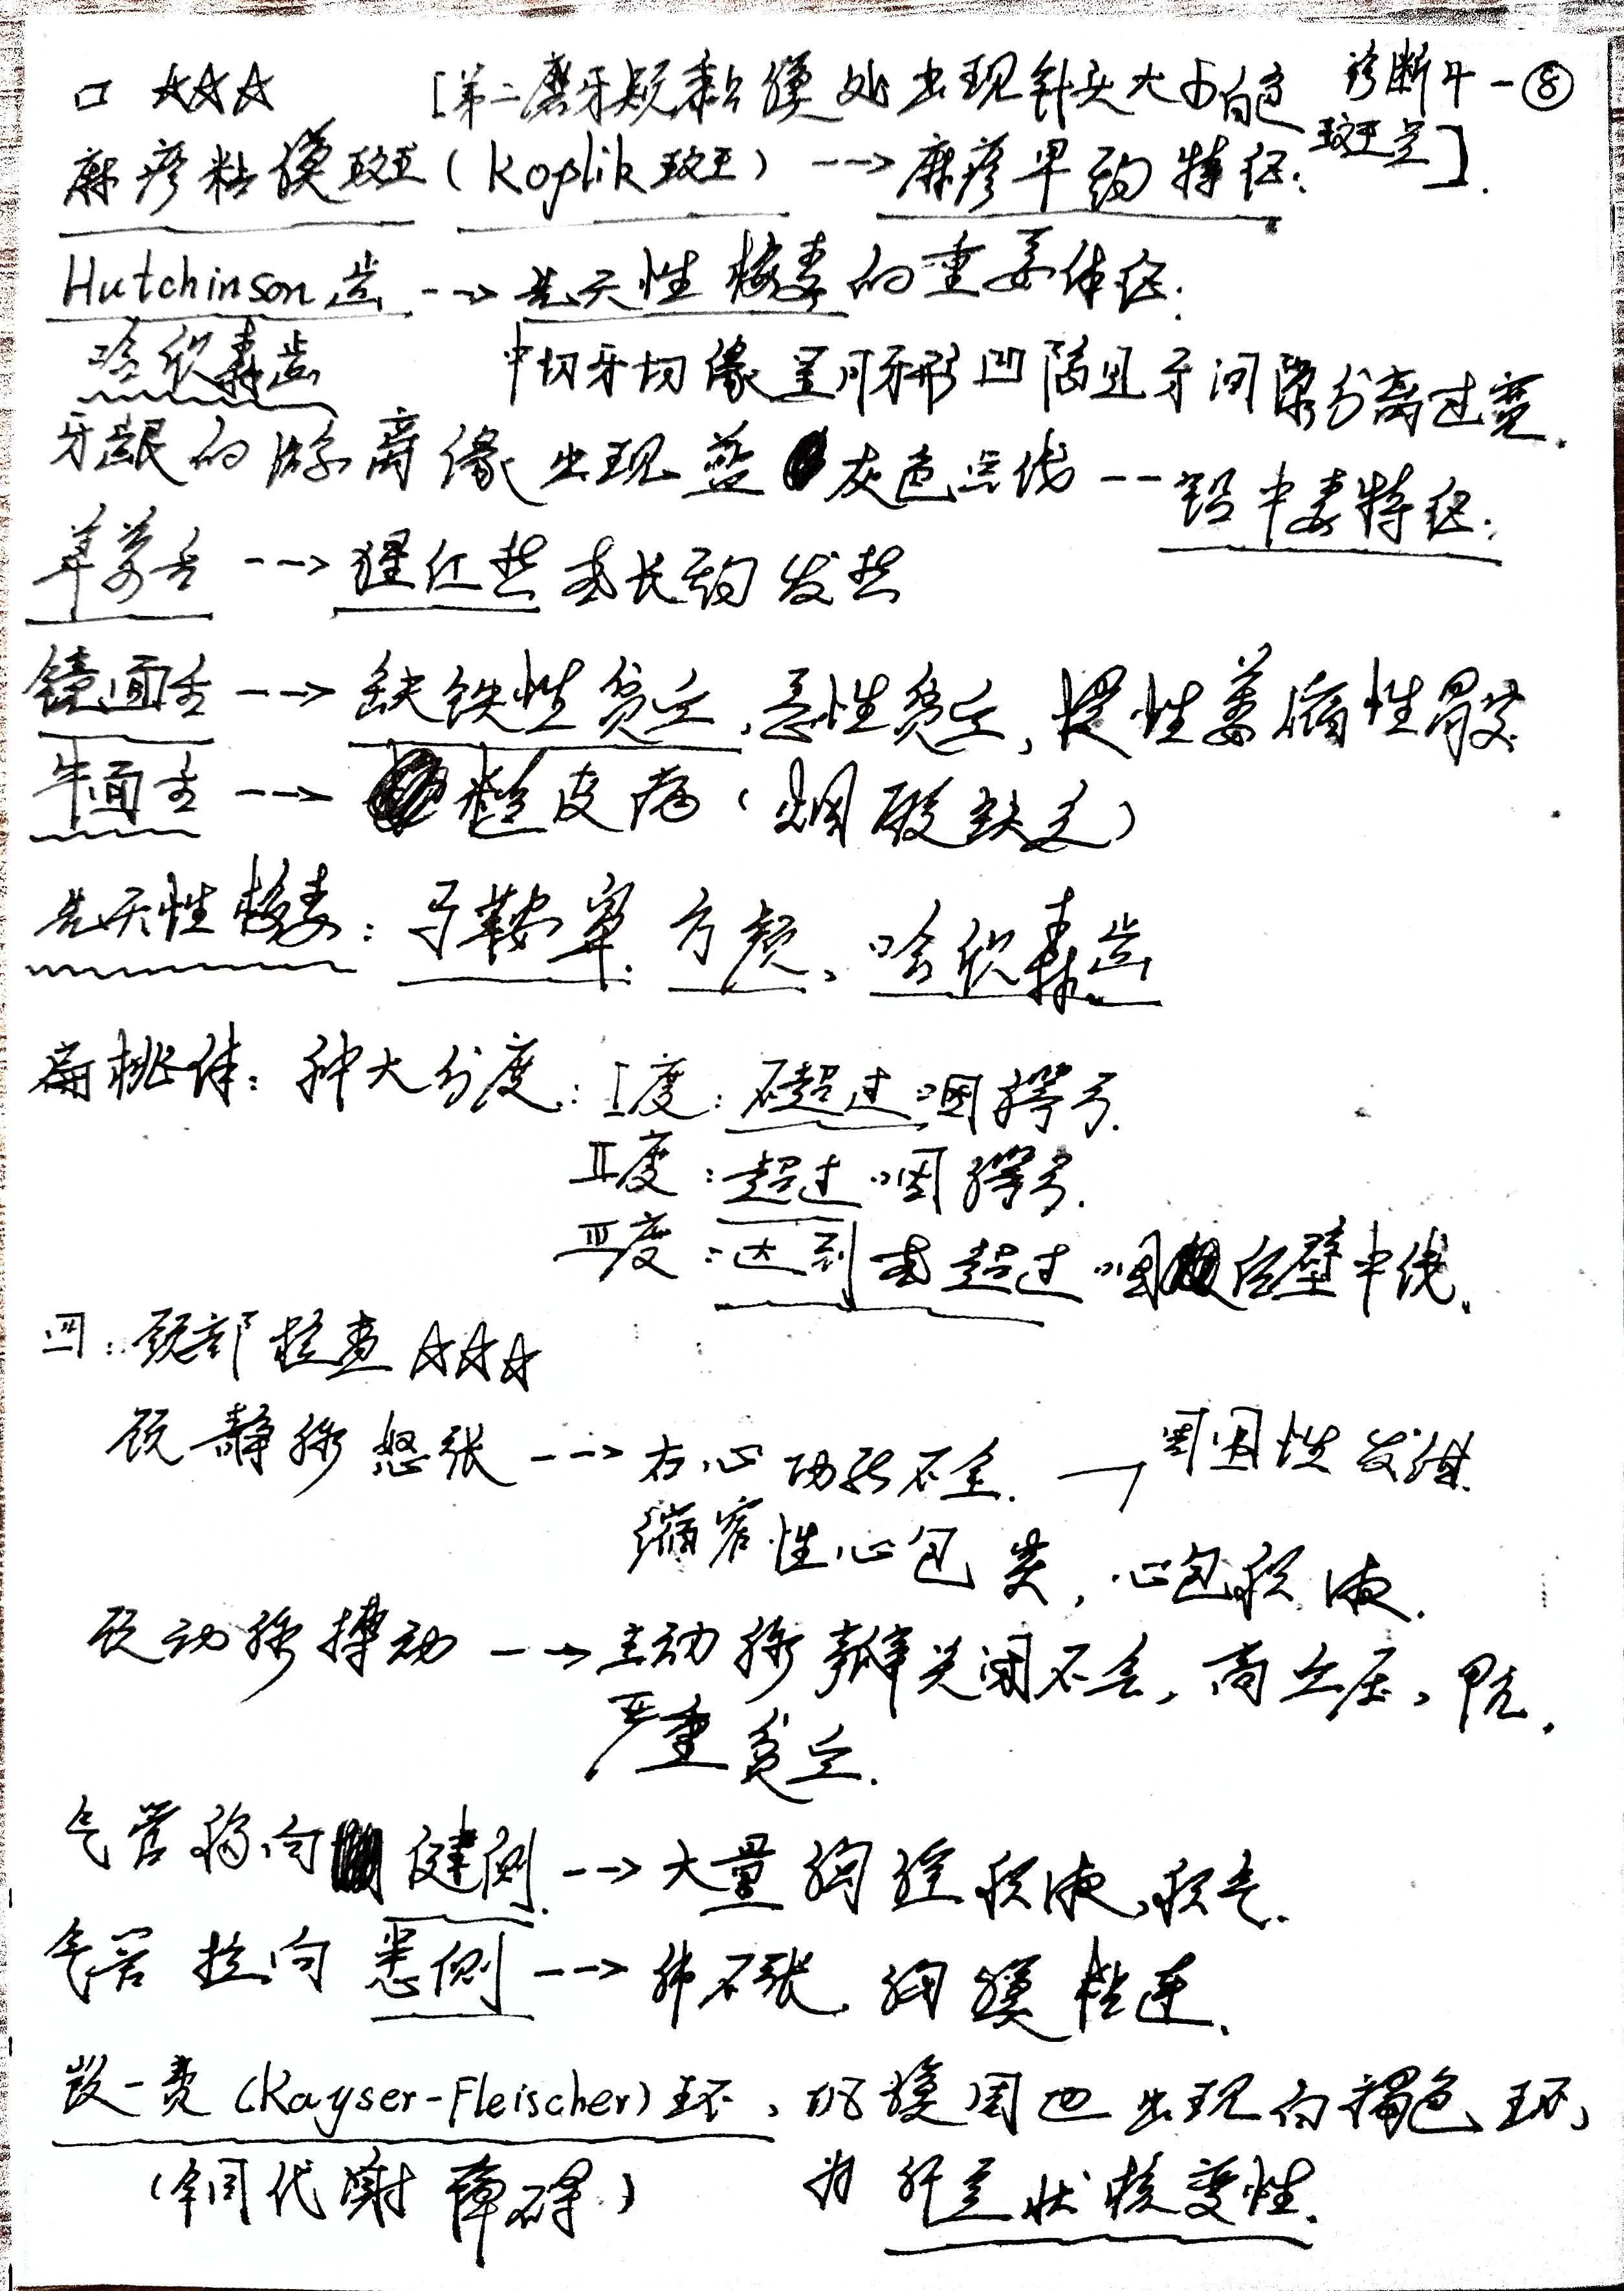 口 ☆☆☆ [第二磨牙颊黏膜处出现针头大小白色斑点]. 诊断学-⑧
麻疹粘膜斑(Koplik斑) --→ 麻疹早期特征.
Hutchinson齿 --→ 先天性梅毒的重要体征.
哈钦森齿 中切牙切缘呈月牙形凹陷且牙间隙分离过宽.
牙龈的游离缘出现蓝灰色点线 -- 铅中毒特征.
草莓舌 --→ 猩红热或长期发热
镜面舌 --→ 缺铁性贫血,恶性贫血,慢性萎缩性胃炎
牛面舌 --→ 糙皮病(烟酸缺乏)
先天性梅毒:马鞍鼻.方颅、哈钦森齿
扁桃体:肿大分度:I度:不超过咽腭弓.
II度:超过咽腭弓.
III度:达到或超过咽后壁中线.
四:颈部检查☆☆☆
颈静脉怒张 --→ 右心功能不全. → 周围性发绀.
缩窄性心包炎,心包积液.
颈动脉搏动 --→ 主动脉瓣关闭不全,高血压,甲亢.
严重贫血.
气管移向健侧 --→ 大量胸腔积液,积气.
气管拉向患侧 --→ 肺不张.胸膜粘连.
凯-费(Kayser-Fleischer)环,角膜周边出现的褐色环,
(铜代谢障碍) 为肝豆状核变性.